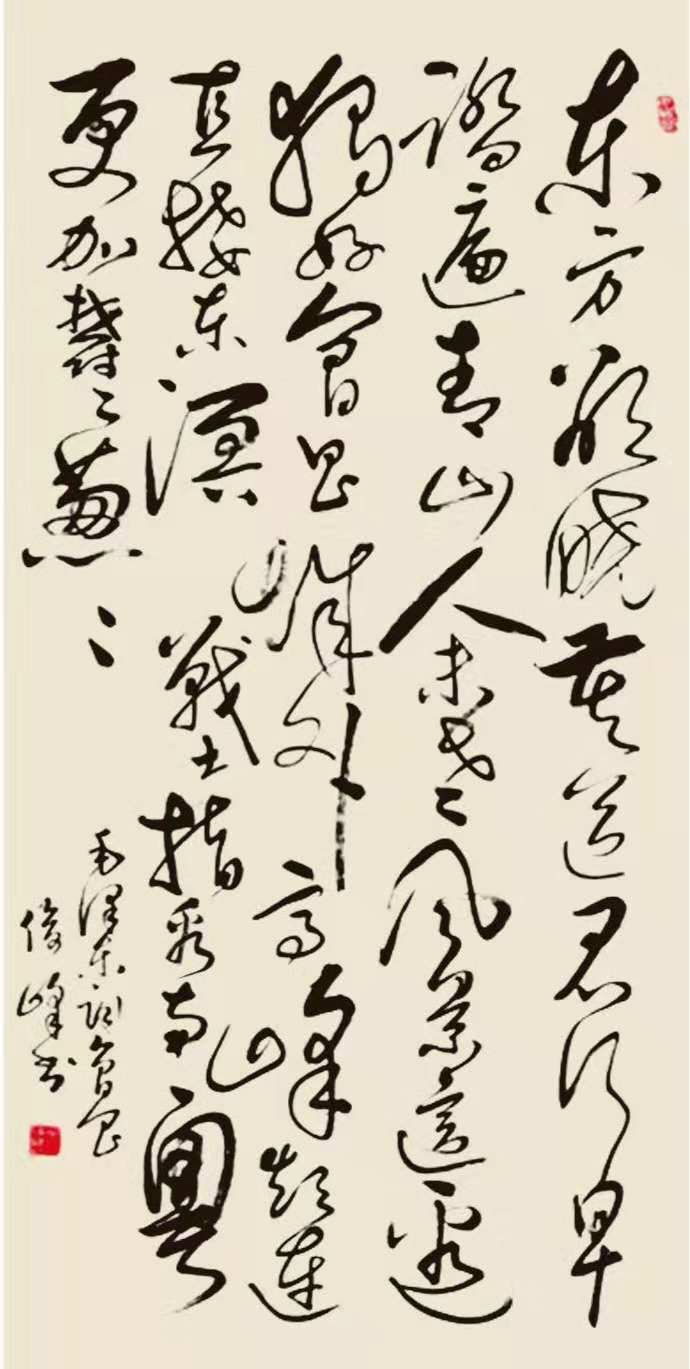 东方欲晓莫道君行早
踏遍青山人未老风景這邊
獨好會昌城外高峰颠连
直接东溟战士指看南粤
更加鬱〻葱〻
毛泽东词會昌
俊峰书